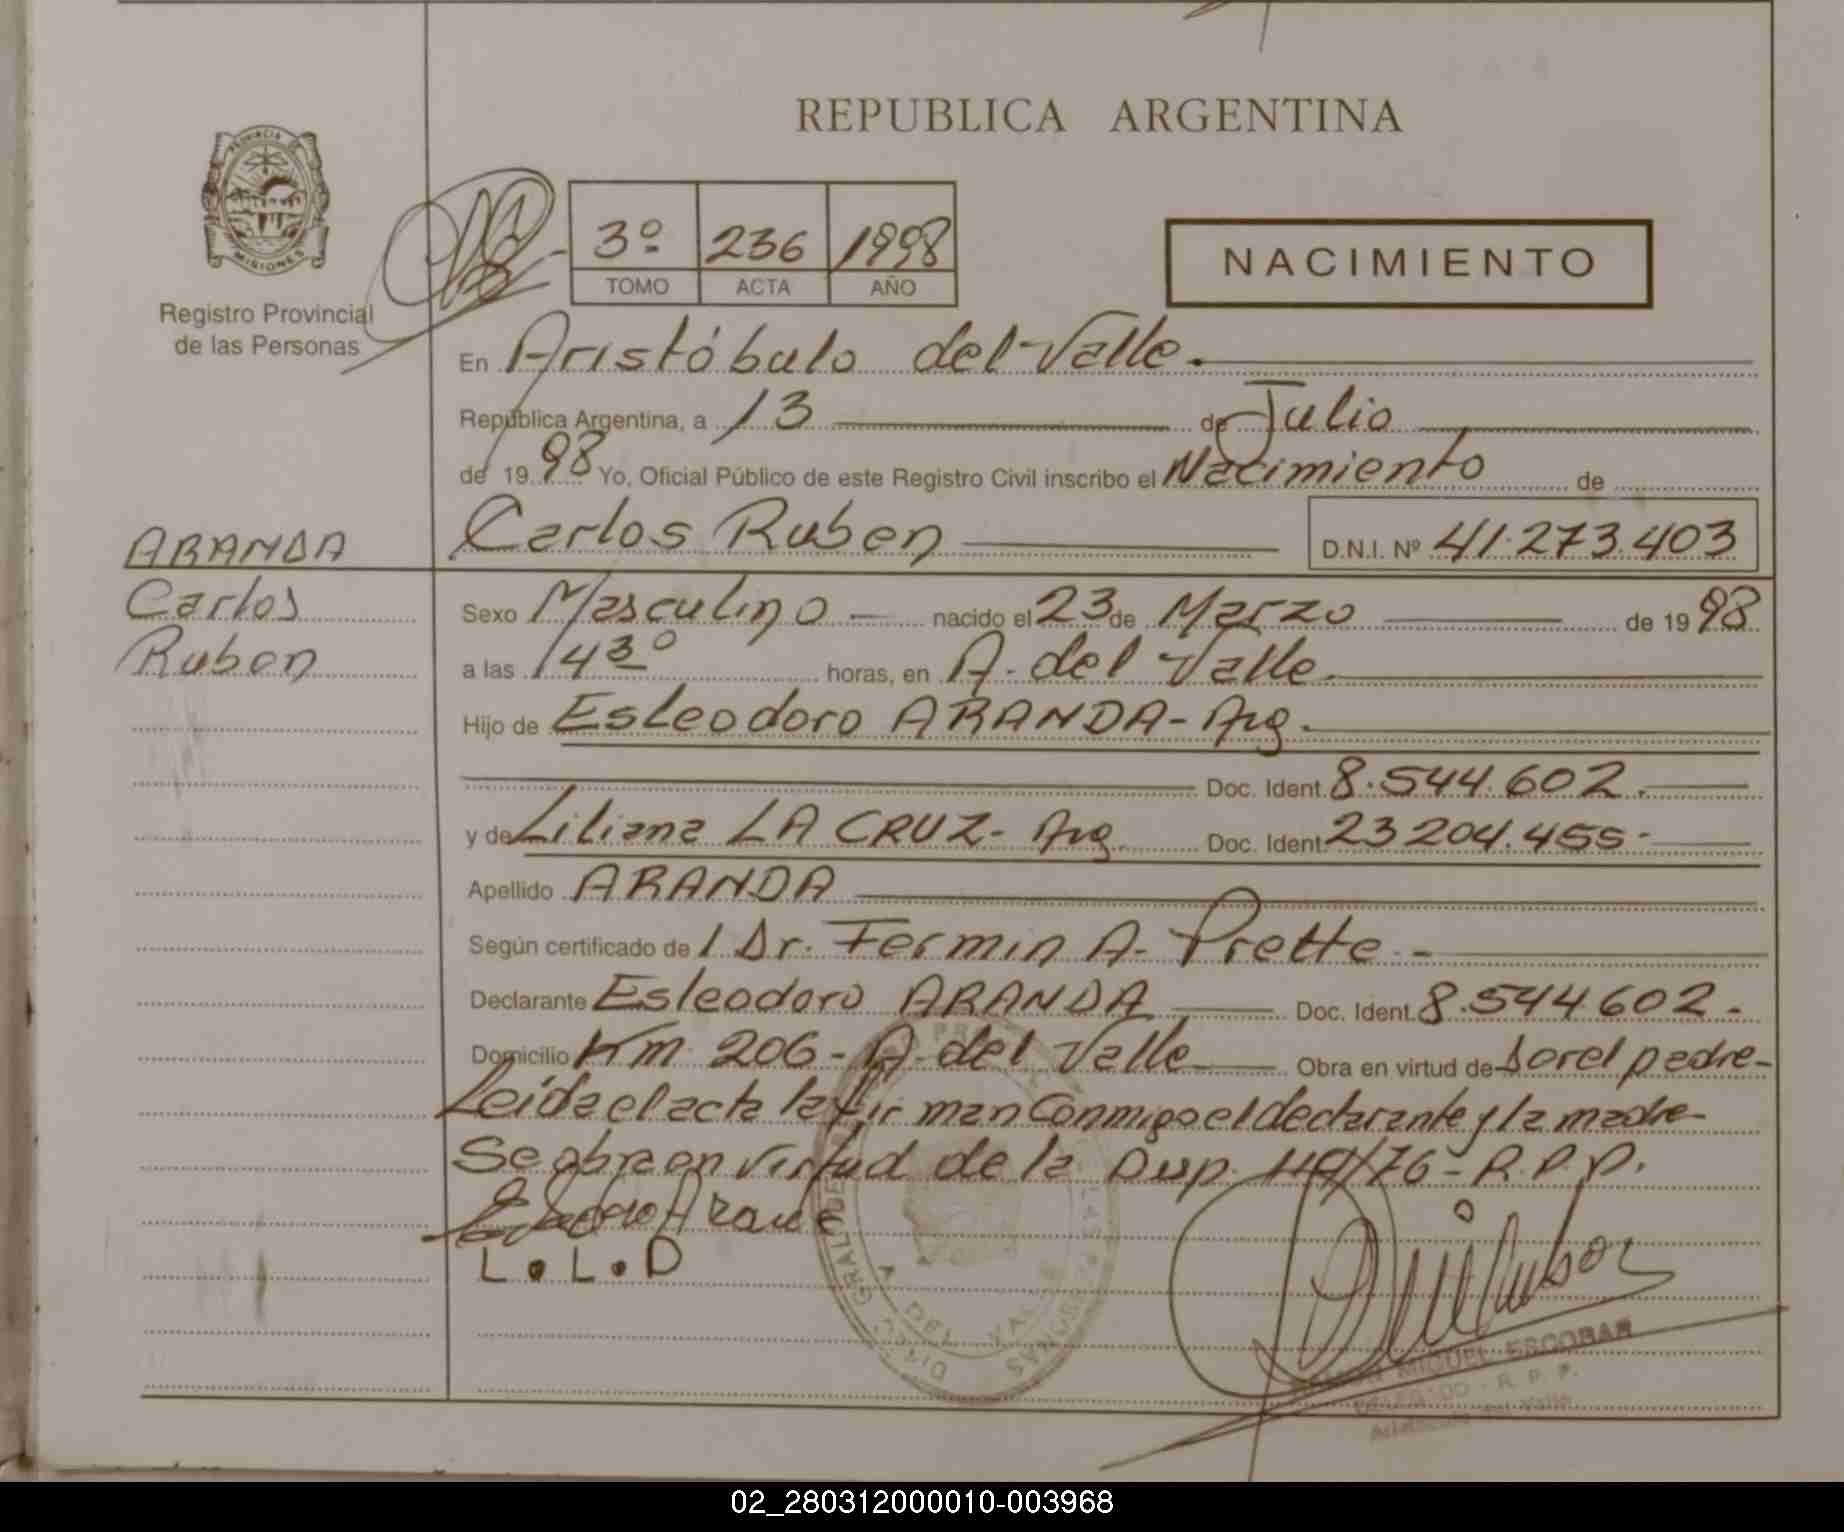 REPUBLICA ARGENTINA
PROVINCIA DE
MISIONES
Registro Provincial
de las Personas
3º 236 1998
TOMO ACTA AÑO
NACIMIENTO
En Aristóbulo del Valle.
República Argentina, a 13 de Julio
de 1998 Yo, Oficial Público de este Registro Civil inscribo el Nacimiento de
Carlos Ruben D.N.I. Nº 41.273.403
ARANDA
Carlos
Ruben
Sexo Masculino nacido el 23 de Marzo de 1998
a las 14 30 horas, en A. del Valle.
Hijo de Esleodoro ARANDA - Arg.
Doc. Ident. 8.544.602.
y de Liliana LA CRUZ - Arg. Doc. Ident. 23 204.455-
Apellido ARANDA
Según certificado de l Dr. Fermin A. Prette.-
Declarante Esleodoro ARANDA Doc. Ident. 8.544.602.
Domicilio Km. 206 - A. del Valle Obra en virtud de Ser el padre-
Leida el acta la firman Conmigo el declarante y la madre-
Se obra en virtud de la Disp. 119/76 - R.P.P.
L.L.D
MIGUEL ESCOBAR
DELEGADO - R. P. P.
Aristóbulo del Valle
02_280312000010-003968